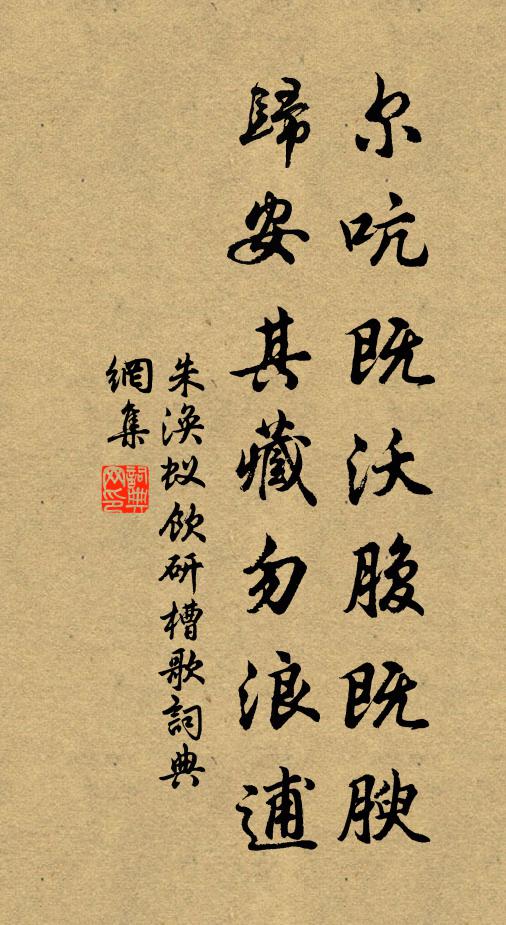 尔吭既沃腹既腴
歸安其藏勿浪逋
朱渙蚁飲研槽歌詞典
網集
詞典網印